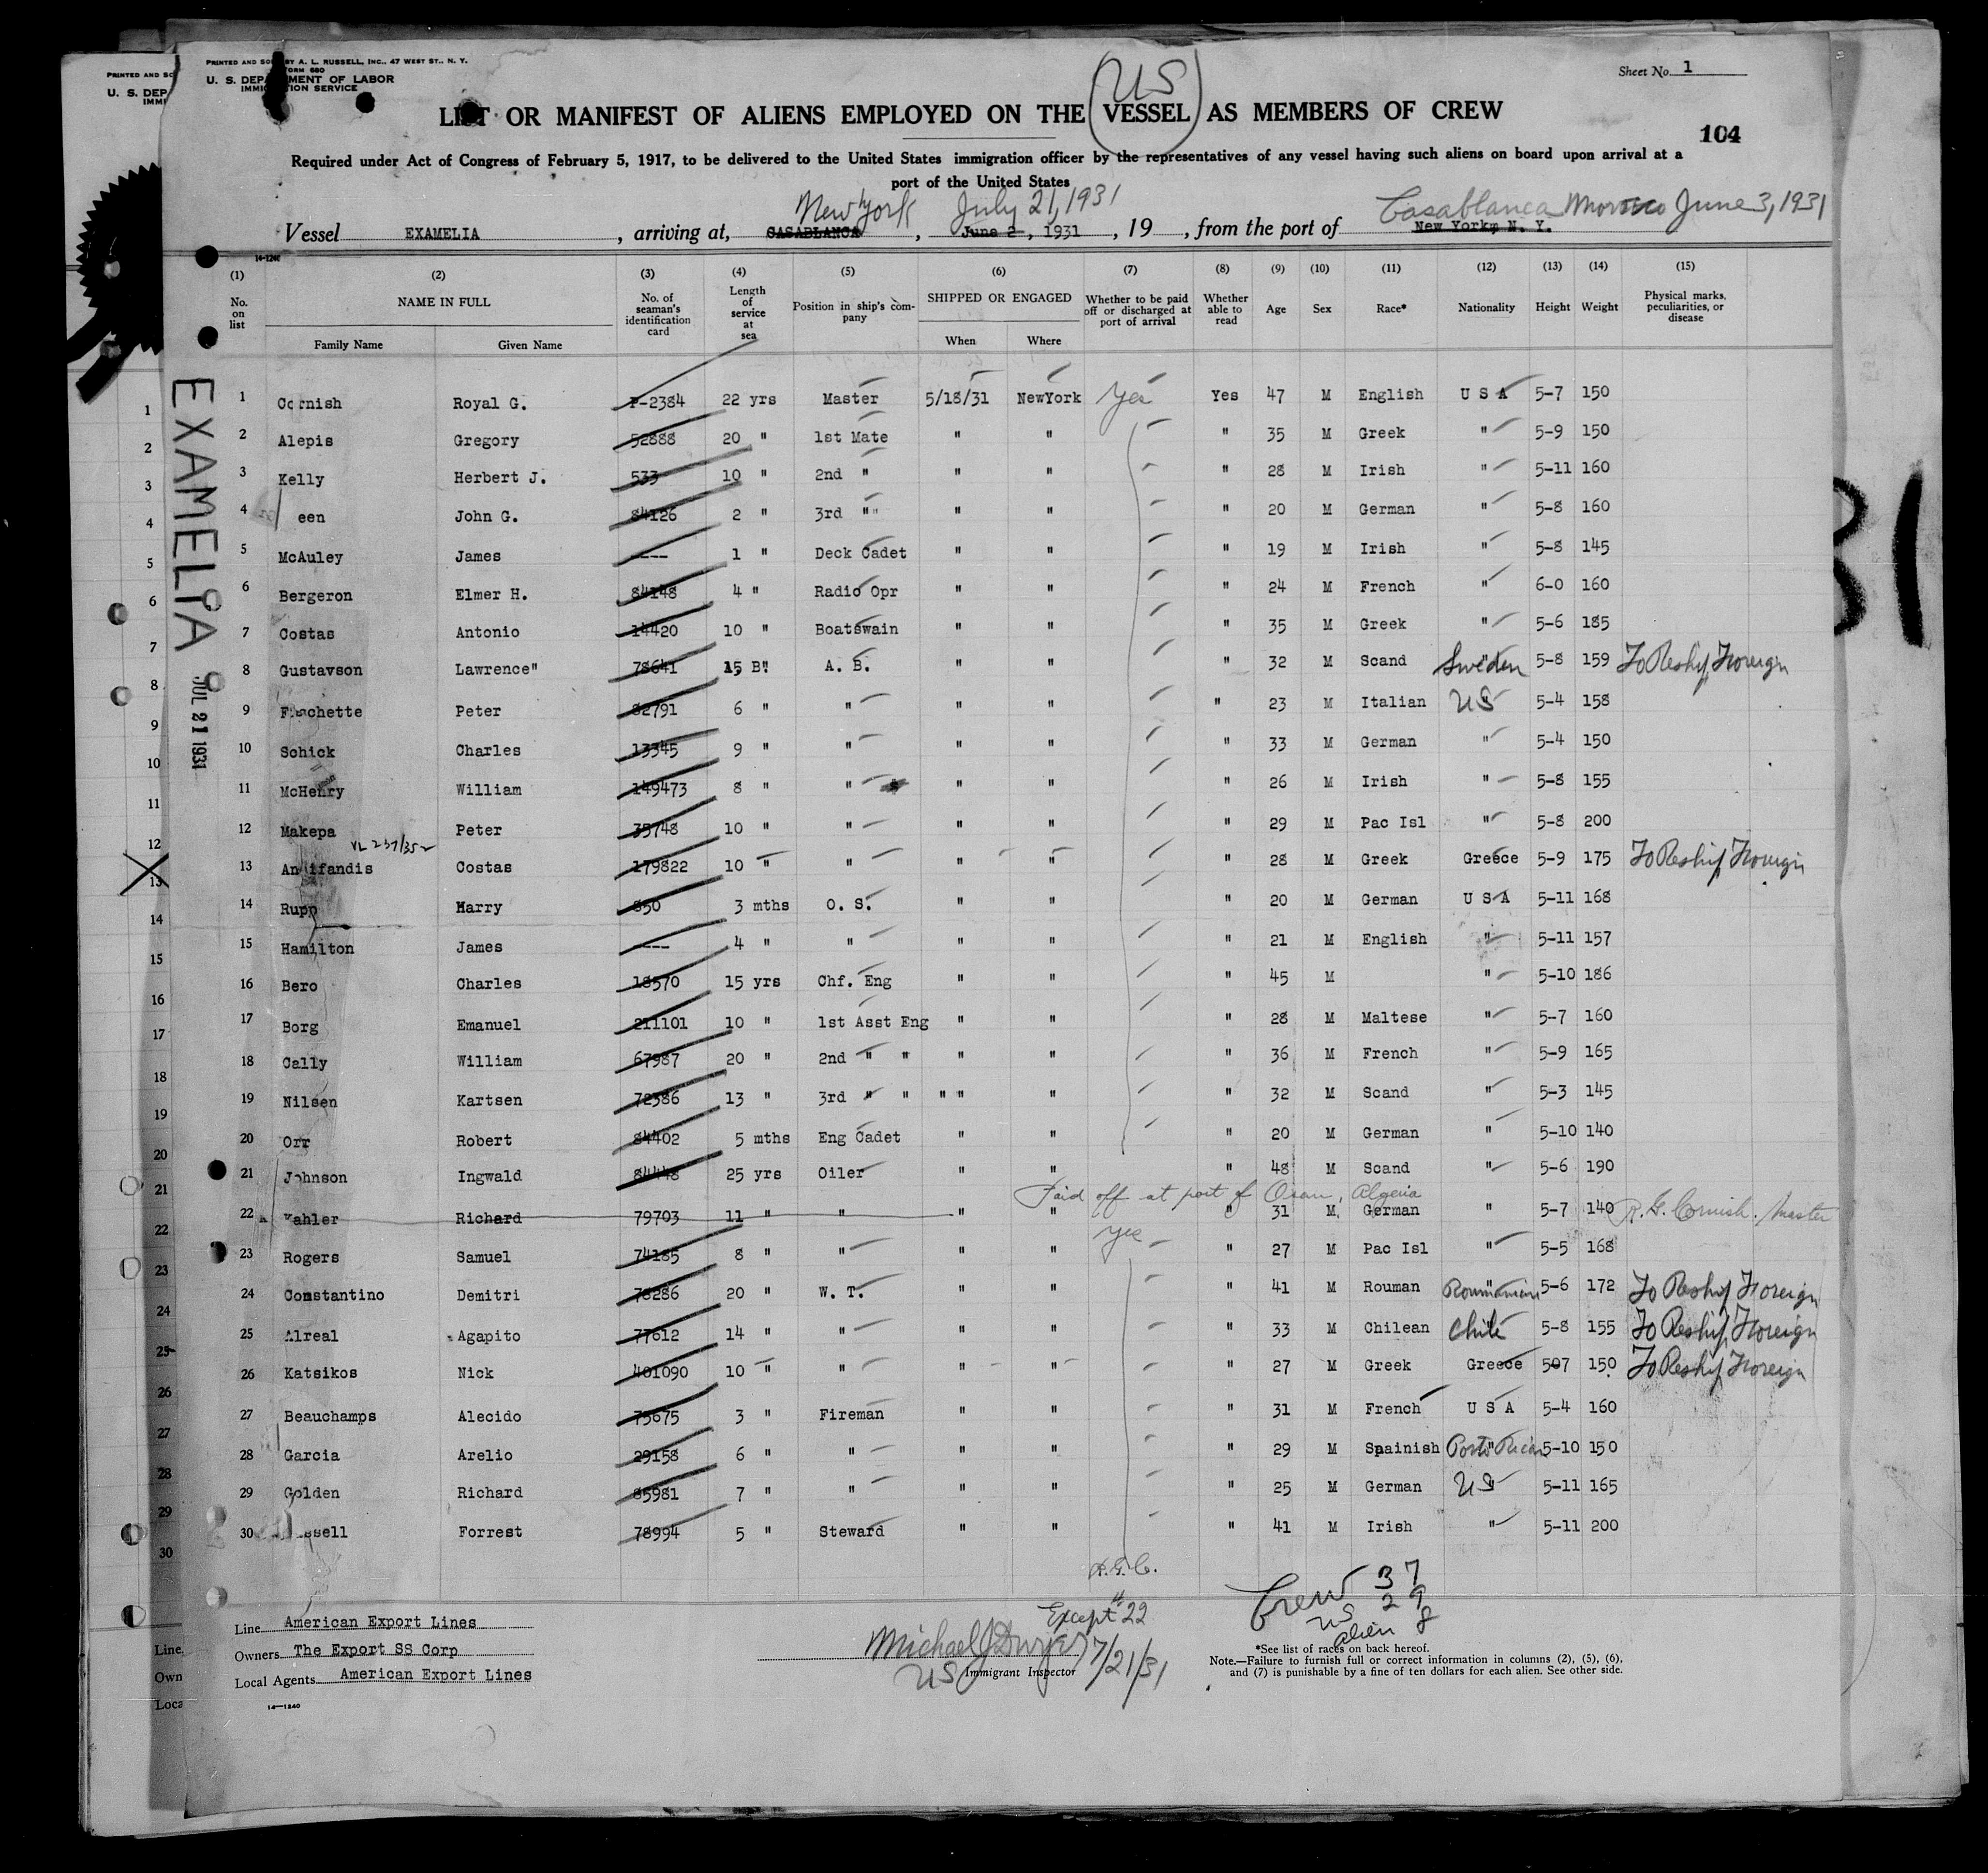 PRINTED AND SO BY A. L. RUSSELL, INC., 47 WEST ST., N. Y.
FORM 680
U. S. DEPARTMENT OF LABOR
IMMIGRATION SERVICE
Sheet No. 1
US
LIST OR MANIFEST OF ALIENS EMPLOYED ON THE VESSEL AS MEMBERS OF CREW
104
Required under Act of Congress of February 5, 1917, to be delivered to the United States immigration officer by the representatives of any vessel having such aliens on board upon arrival at a
port of the United States
New York July 21, 1931 Casablanca Morocco June 3, 1931
Vessel EXAMELIA , arriving at, CASABLANCA , June 2, 1931 , 19 , from the port of New York, N. Y.
14-1240
(1) (2) (3) (4) (5) (6) (7) (8) (9) (10) (11) (12) (13) (14) (15)
No. on list NAME IN FULL Family Name Given Name No. of seaman's identification card Length of service at sea Position in ship's company SHIPPED OR ENGAGED When Where Whether to be paid off or discharged at port of arrival Whether able to read Age Sex Race* Nationality Height Weight Physical marks, peculiarities, or disease
EXAMELIA
JUL 21 1931
1 Cornish Royal G. P-2384 22 yrs Master 5/18/31 NewYork Yes Yes 47 M English U S A 5-7 150
2 Alepis Gregory 52888 20 " 1st Mate " " " 35 M Greek " 5-9 150
3 Kelly Herbert J. 533 10 " 2nd " " " " 28 M Irish " 5-11 160
4 een John G. 84126 2 " 3rd "" " " " 20 M German " 5-8 160
5 McAuley James ---- 1 " Deck Cadet " " " 19 M Irish " 5-8 145
6 Bergeron Elmer H. 84148 4 " Radio Opr " " " 24 M French " 6-0 160
7 Costas Antonio 14420 10 " Boatswain " " " 35 M Greek " 5-6 185
8 Gustavson Lawrence" 78641 15 B" A. B. " " " 32 M Scand Sweden 5-8 159 To Reship Foreign
9 Peter 82791 6 " " " " " 23 M Italian US 5-4 158
10 Schick Charles 13345 9 " " " " " 33 M German " 5-4 150
11 McHenry William 149473 8 " " " " " 26 M Irish " 5-8 155
12 Makepa Peter 35748 10 " " " " " 29 M Pac Isl " 5-8 200
13 Costas 179822 10 " " " " " 28 M Greek Greece 5-9 175 To Reship Foreign
14 Rupp Harry 850 3 mths O. S. " " " 20 M German U S A 5-11 168
15 Hamilton James ---- 4 " " " " " 21 M English " 5-11 157
16 Bero Charles 18570 15 yrs Chf. Eng " " " 45 M " 5-10 186
17 Borg Emanuel 211101 10 " 1st Asst Eng " " " 28 M Maltese " 5-7 160
18 Cally William 67987 20 " 2nd " " " " " 36 M French " 5-9 165
19 Nilsen Kartsen 72386 13 " 3rd " " " " " " 32 M Scand " 5-3 145
20 Orr Robert 84402 5 mths Eng Cadet " " " 20 M German " 5-10 140
21 Johnson Ingwald 84448 25 yrs Oiler " " " 48 M Scand " 5-6 190
Paid off at port of Oran, Algeria
22 Kahler Richard 79703 11 " " " " " 31 M German " 5-7 140 R. G. Cornish. Master
23 Rogers Samuel 74185 8 " " " " Yes " 27 M Pac Isl " 5-5 168
24 Constantino Demitri 78286 20 " W. T. " " " 41 M Rouman Roumanian 5-6 172 To Reship Foreign
25 Alreal Agapito 77612 14 " " " " " 33 M Chilean Chile 5-8 155 To Reship Foreign
26 Katsikos Nick 401090 10 " " " " " 27 M Greek Greece 507 150 To Reship Foreign
27 Beauchamps Alecido 75675 3 " Fireman " " " 31 M French U S A 5-4 160
28 Garcia Arelio 29158 6 " " " " " 29 M Spainish Porto Rican 5-10 150
29 Golden Richard 85981 7 " " " " " 25 M German US 5-11 165
30 ssell Forrest 78994 5 " Steward " " " 41 M Irish " 5-11 200
R.G.C.
Except #22
Crew 37
US 29
alien 8
Line American Export Lines
Owners The Export SS Corp
Local Agents American Export Lines
14-1240
Michael J Dwyer 7/21/31
US Immigrant Inspector
*See list of races on back hereof.
Note.—Failure to furnish full or correct information in columns (2), (5), (6),
and (7) is punishable by a fine of ten dollars for each alien. See other side.